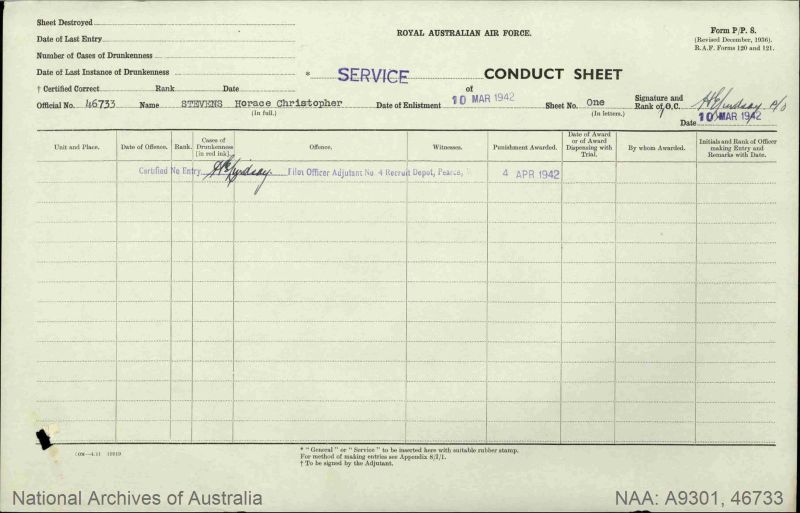 Sheet Destroyed
Date of Last Entry
Number of Cases of Drunkenness
Date of Last Instance of Drunkenness
† Certified Correct Rank Date
ROYAL AUSTRALIAN AIR FORCE.
Form P/P. 8.
(Revised December, 1936).
R.A.F. Forms 120 and 121.
* SERVICE of CONDUCT SHEET
Official No. 46733 Name STEVENS Horace Christopher Date of Enlistment 10 MAR 1942 Sheet No. One Signature and Rank of O.C. H E Lindsay P/O
(In full.) (In letters.) Date 10 MAR 1942
Unit and Place. Date of Offence. Rank. Cases of Drunkenness [in red ink]. Offence. Witnesses. Punishment Awarded. Date of Award or of Award Dispensing with Trial. By whom Awarded. Initials and Rank of Officer making Entry and Remarks with Date.
Certified No Entry H E Lindsay Pilot Officer Adjutant No. 4 Recruit Depot, Pearce, 4 APR 1942
* “ General ” or “ Service ” to be inserted here with suitable rubber stamp.
For method of making entries see Appendix 8/7/1.
† To be signed by the Adjutant.
National Archives of Australia
NAA: A9301, 46733